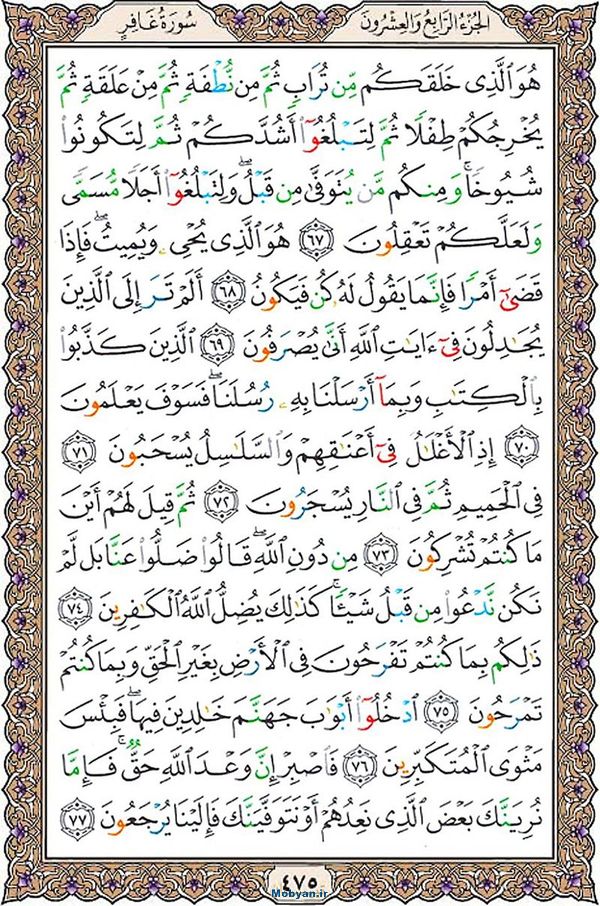 الجزء الرابع والعشرون سورة غافر
هُوَ ٱلَّذِى خَلَقَكُم مِّن تُرَابٍ ثُمَّ مِن نُّطْفَةٍ ثُمَّ مِنْ عَلَقَةٍ ثُمَّ
يُخْرِجُكُمْ طِفْلًا ثُمَّ لِتَبْلُغُوٓا۟ أَشُدَّكُمْ ثُمَّ لِتَكُونُوا۟
شُيُوخًا ۚ وَمِنكُم مَّن يُتَوَفَّىٰ مِن قَبْلُ ۖ وَلِتَبْلُغُوٓا۟ أَجَلًا مُّسَمًّى
وَلَعَلَّكُمْ تَعْقِلُونَ ٦٧ هُوَ ٱلَّذِى يُحْىِۦ وَيُمِيتُ ۖ فَإِذَا
قَضَىٰٓ أَمْرًا فَإِنَّمَا يَقُولُ لَهُۥ كُن فَيَكُونُ ٦٨ أَلَمْ تَرَ إِلَى ٱلَّذِينَ
يُجَٰدِلُونَ فِىٓ ءَايَٰتِ ٱللَّهِ أَنَّىٰ يُصْرَفُونَ ٦٩ ٱلَّذِينَ كَذَّبُوا۟
بِٱلْكِتَٰبِ وَبِمَآ أَرْسَلْنَا بِهِۦ رُسُلَنَا ۖ فَسَوْفَ يَعْلَمُونَ
٧٠ إِذِ ٱلْأَغْلَٰلُ فِىٓ أَعْنَٰقِهِمْ وَٱلسَّلَٰسِلُ يُسْحَبُونَ ٧١
فِى ٱلْحَمِيمِ ثُمَّ فِى ٱلنَّارِ يُسْجَرُونَ ٧٢ ثُمَّ قِيلَ لَهُمْ أَيْنَ
مَا كُنتُمْ تُشْرِكُونَ ٧٣ مِن دُونِ ٱللَّهِ ۖ قَالُوا۟ ضَلُّوا۟ عَنَّا بَل لَّمْ
نَكُن نَّدْعُوا۟ مِن قَبْلُ شَيْـًٔا ۚ كَذَٰلِكَ يُضِلُّ ٱللَّهُ ٱلْكَٰفِرِينَ ٧٤
ذَٰلِكُم بِمَا كُنتُمْ تَفْرَحُونَ فِى ٱلْأَرْضِ بِغَيْرِ ٱلْحَقِّ وَبِمَا كُنتُمْ
تَمْرَحُونَ ٧٥ ٱدْخُلُوٓا۟ أَبْوَٰبَ جَهَنَّمَ خَٰلِدِينَ فِيهَا ۖ فَبِئْسَ
مَثْوَى ٱلْمُتَكَبِّرِينَ ٧٦ فَٱصْبِرْ إِنَّ وَعْدَ ٱللَّهِ حَقٌّ ۚ فَإِمَّا
نُرِيَنَّكَ بَعْضَ ٱلَّذِى نَعِدُهُمْ أَوْ نَتَوَفَّيَنَّكَ فَإِلَيْنَا يُرْجَعُونَ ٧٧
٤٧٥
Mobyan.ir